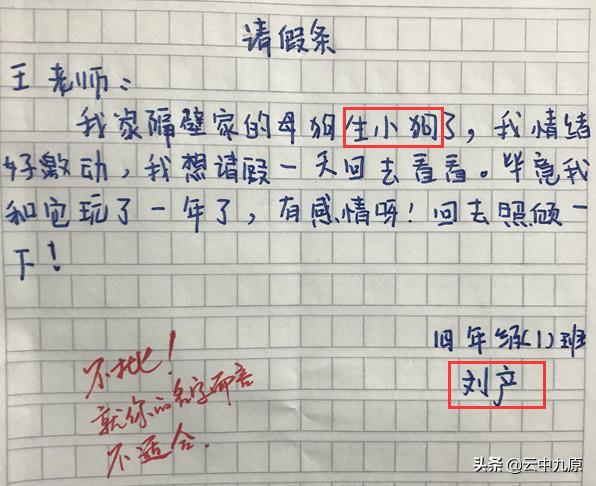 请假条
王老师：
我家隔壁家的母狗生小狗了，我情绪
好激动，我想请假一天回去看看。毕竟我
和它玩了一年了，有感情呀！回去照顾一
下！
四年级(1)班
刘产
不批！
就你的名字而言
不适合.
头条 @云中九原